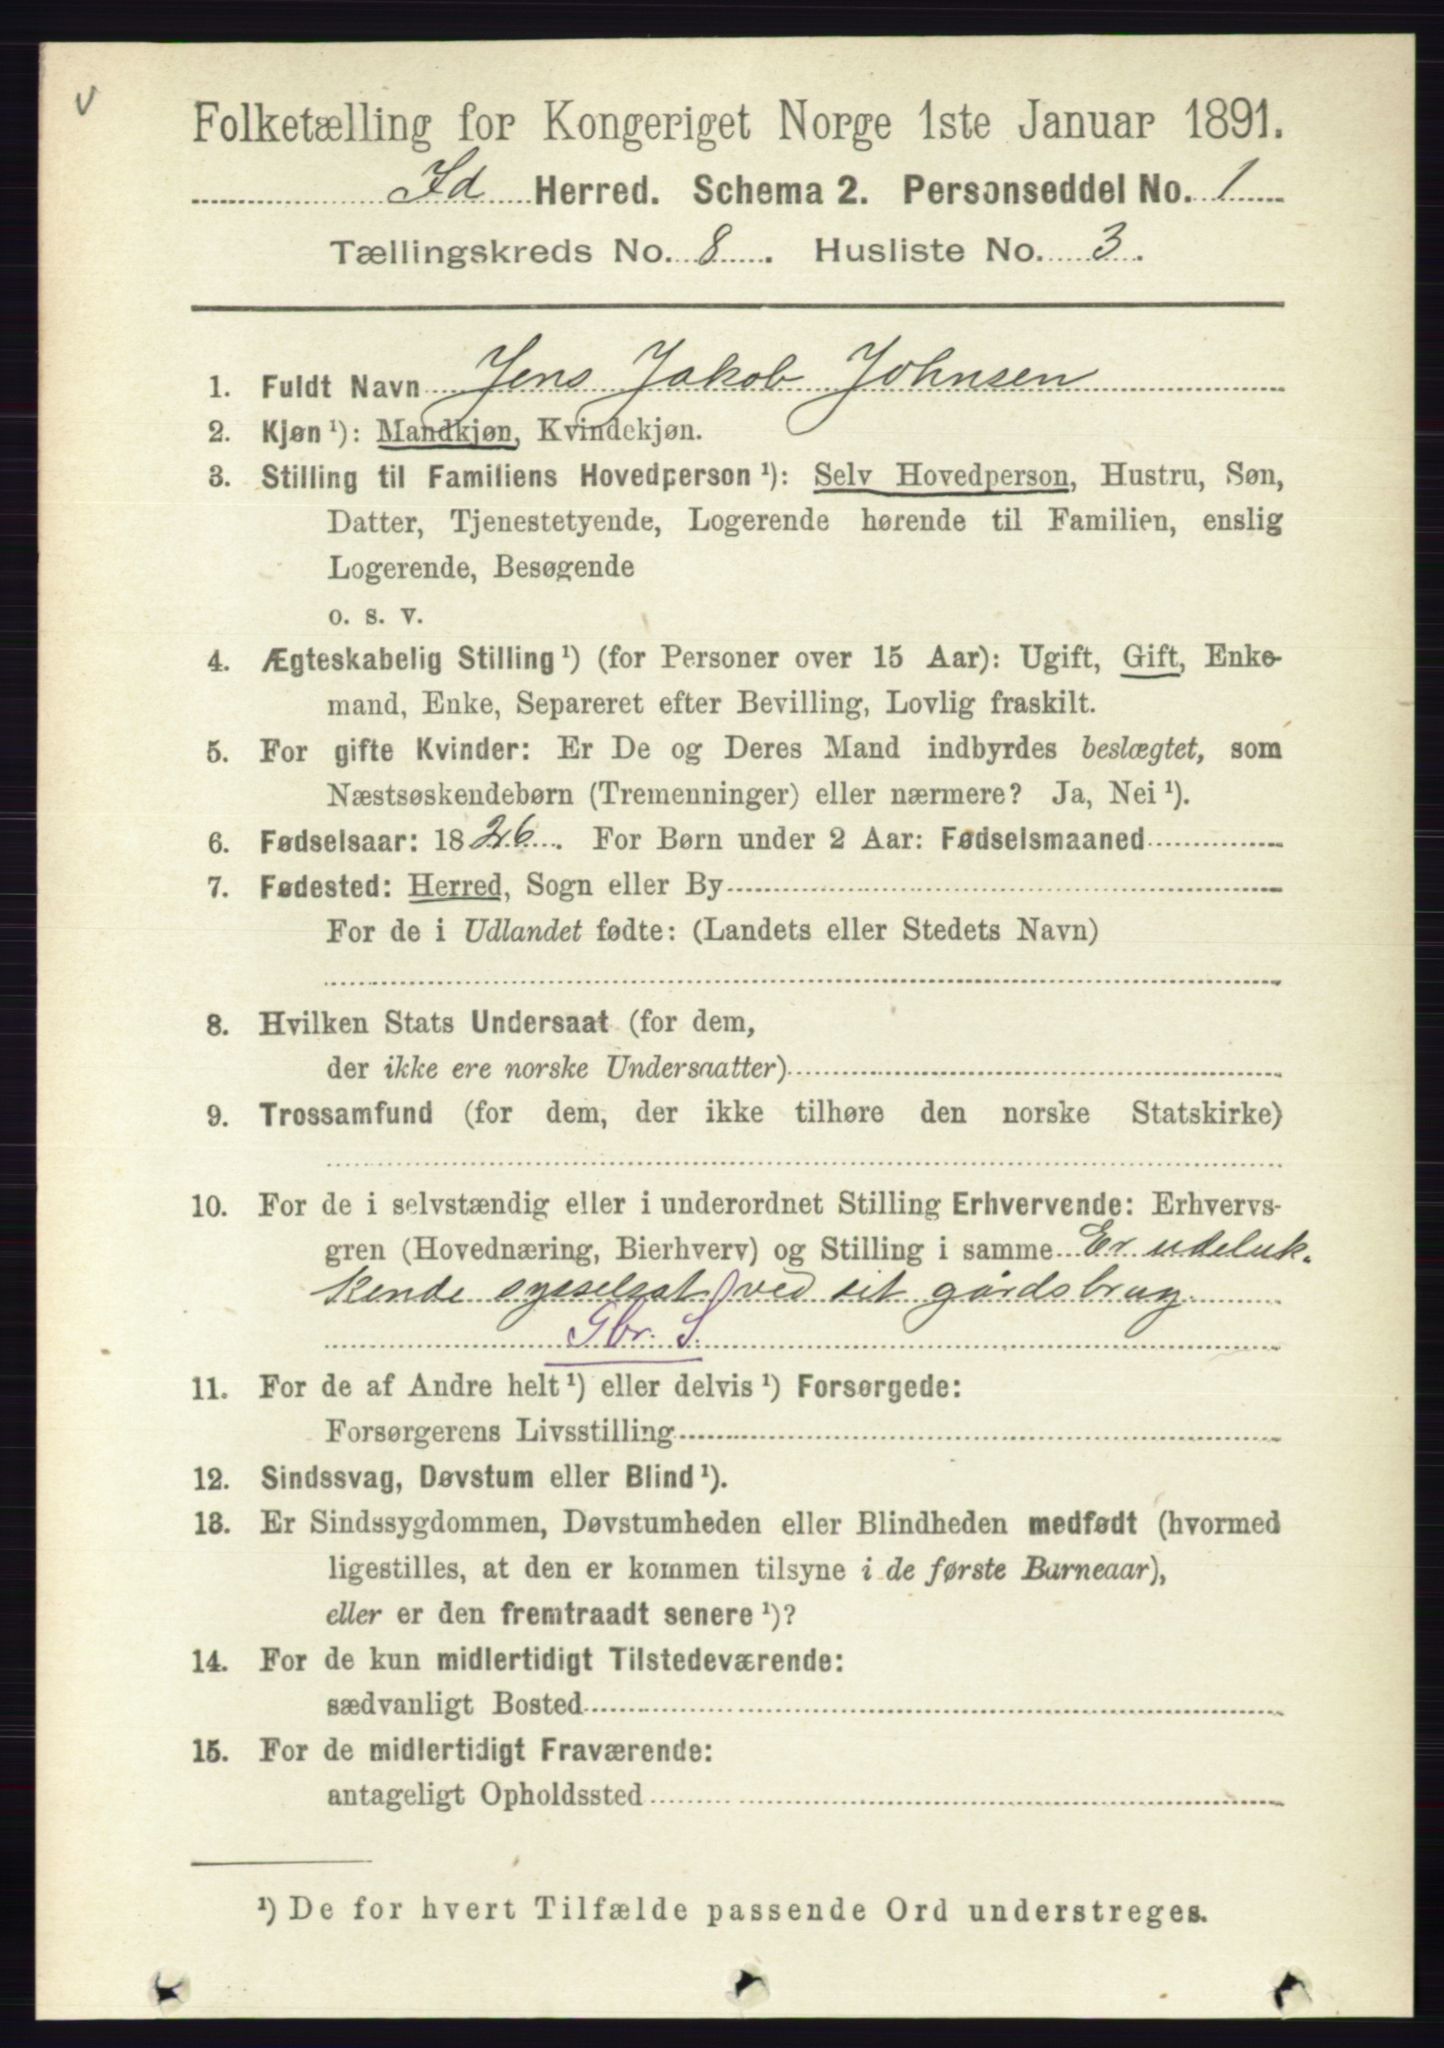 v
Folketælling for Kongeriget Norge 1ste Januar 1891.
Id Herred. Schema 2. Personseddel No. 1
Tællingskreds No. 8. Husliste No. 3.
1. Fuldt Navn Jens Jakob Johnsen
2. Kjøn ¹): Mandkjøn, Kvindekjøn.
3. Stilling til Familiens Hovedperson ¹): Selv Hovedperson, Hustru, Søn,
Datter, Tjenestetyende, Logerende hørende til Familien, enslig
Logerende, Besøgende
o. s. v.
4. Ægteskabelig Stilling ¹) (for Personer over 15 Aar): Ugift, Gift, Enke-
mand, Enke, Separeret efter Bevilling, Lovlig fraskilt.
5. For gifte Kvinder: Er De og Deres Mand indbyrdes beslægtet, som
Næstsøskendebørn (Tremenninger) eller nærmere? Ja, Nei ¹).
6. Fødselsaar: 1826. For Børn under 2 Aar: Fødselsmaaned
7. Fødested: Herred, Sogn eller By
For de i Udlandet fødte: (Landets eller Stedets Navn)
8. Hvilken Stats Undersaat (for dem,
der ikke ere norske Undersaatter)
9. Trossamfund (for dem, der ikke tilhøre den norske Statskirke)
10. For de i selvstændig eller i underordnet Stilling Erhvervende: Erhvervs-
gren (Hovednæring, Bierhverv) og Stilling i samme Er udeluk-
kende sysselsat ved sit gårdsbrug.
Gbr. S.
11. For de af Andre helt ¹) eller delvis ¹) Forsørgede:
Forsørgerens Livsstilling
12. Sindssvag, Døvstum eller Blind ¹).
13. Er Sindssygdommen, Døvstumheden eller Blindheden medfødt (hvormed
ligestilles, at den er kommen tilsyne i de første Barneaar),
eller er den fremtraadt senere ¹)?
14. For de kun midlertidigt Tilstedeværende:
sædvanligt Bosted
15. For de midlertidigt Fraværende:
antageligt Opholdssted
¹) De for hvert Tilfælde passende Ord understreges.